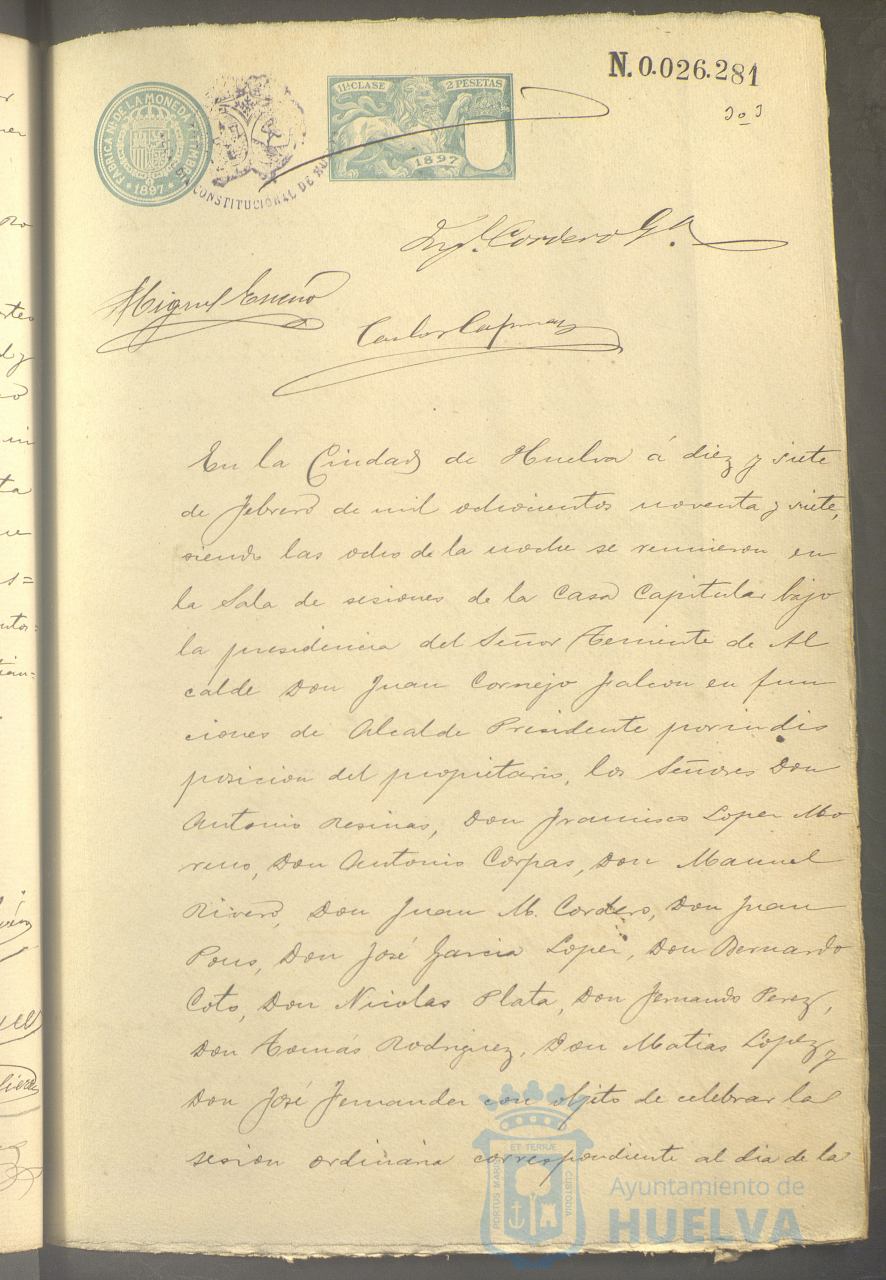 N.0.026.281
11ª CLASE 2 PESETAS
1897
FABRICA Nal DE LA MONEDA Y TIMBRE
1897
CONSTITUCIONAL DE
Cordero
Miguel
Carlos
En la Ciudad de Huelva á diez y siete
de febrero de mil ochocientos noventa y siete,
siendo las ocho de la noche se reunieron en
la Sala de sesiones de la Casa Capitular bajo
la presidencia del Señor Teniente de Al
calde Don Juan Cornejo Falcon en fun
ciones de Alcalde Presidente por indis
posicion del propietario, los Señores Don
Antonio Resinas, Don Francisco Lopez Mo
reno, Don Antonio Corpas, Don Manuel
Rivero, Don Juan M. Cordero, Don Juan
Pons, Don José Garcia Lopez, Don Bernardo
Coto, Don Nicolas Plata, Don Fernando Perez,
Don Tomás Rodriguez, Don Matias Lopez y
Don José Fernandez con objeto de celebrar la
sesion ordinaria correspondiente al dia de la
PORTUS MARIS ET TERRÆ CUSTODIA
Ayuntamiento de
HUELVA